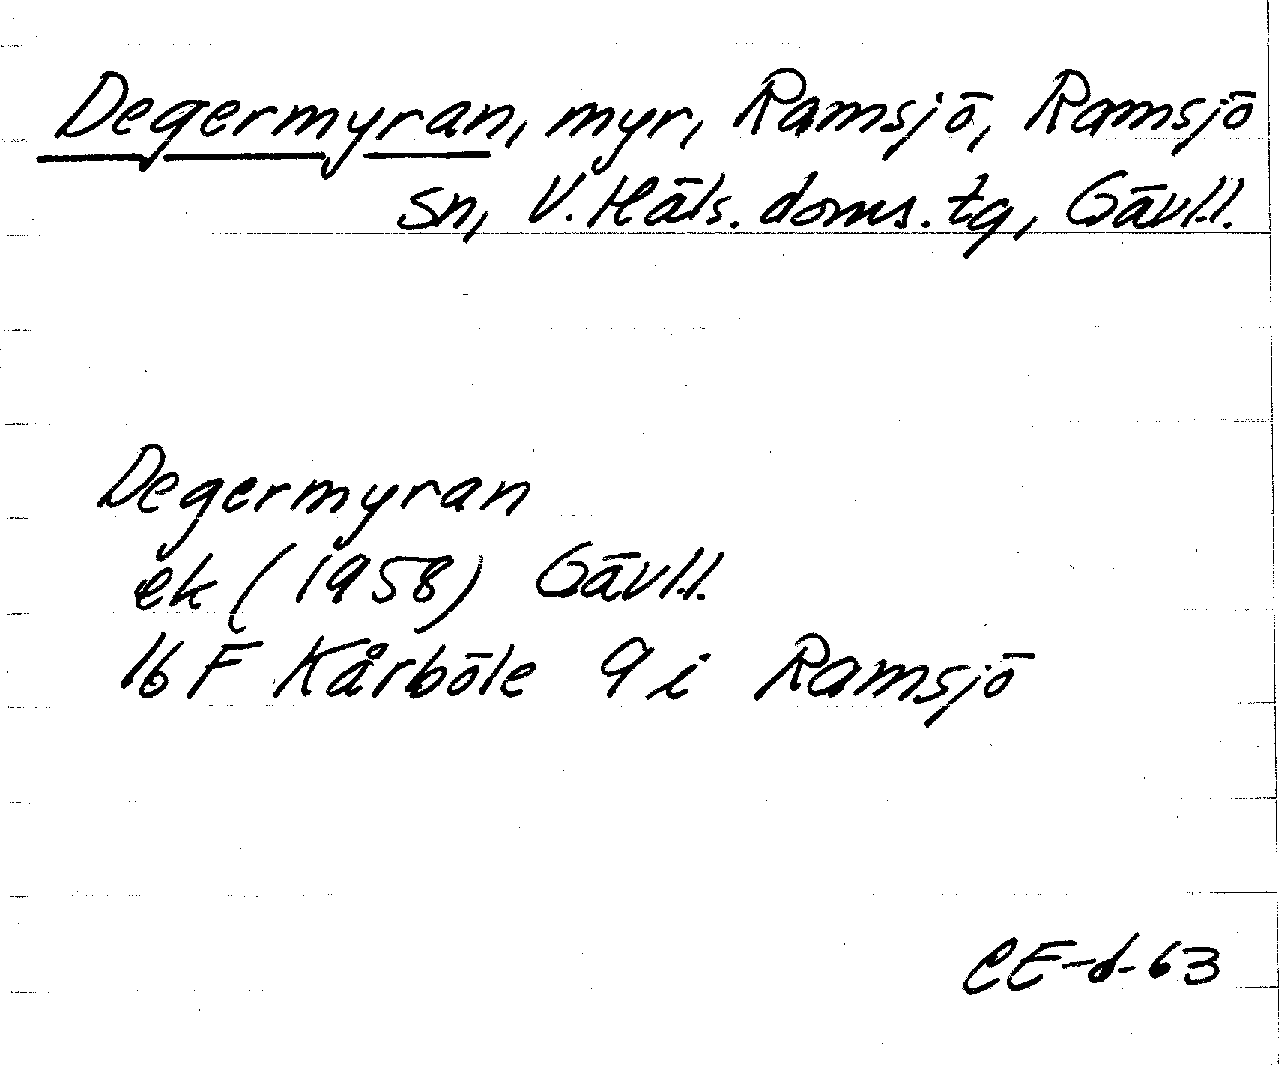 Degermyran, myr, Ramsjö, Ramsjö
sn, V. Häls. doms. tg, Gävl.l.
Degermyran
ek (1958) Gävl.l.
16 F Kårböle 9 i Ramsjö
CE-d-63